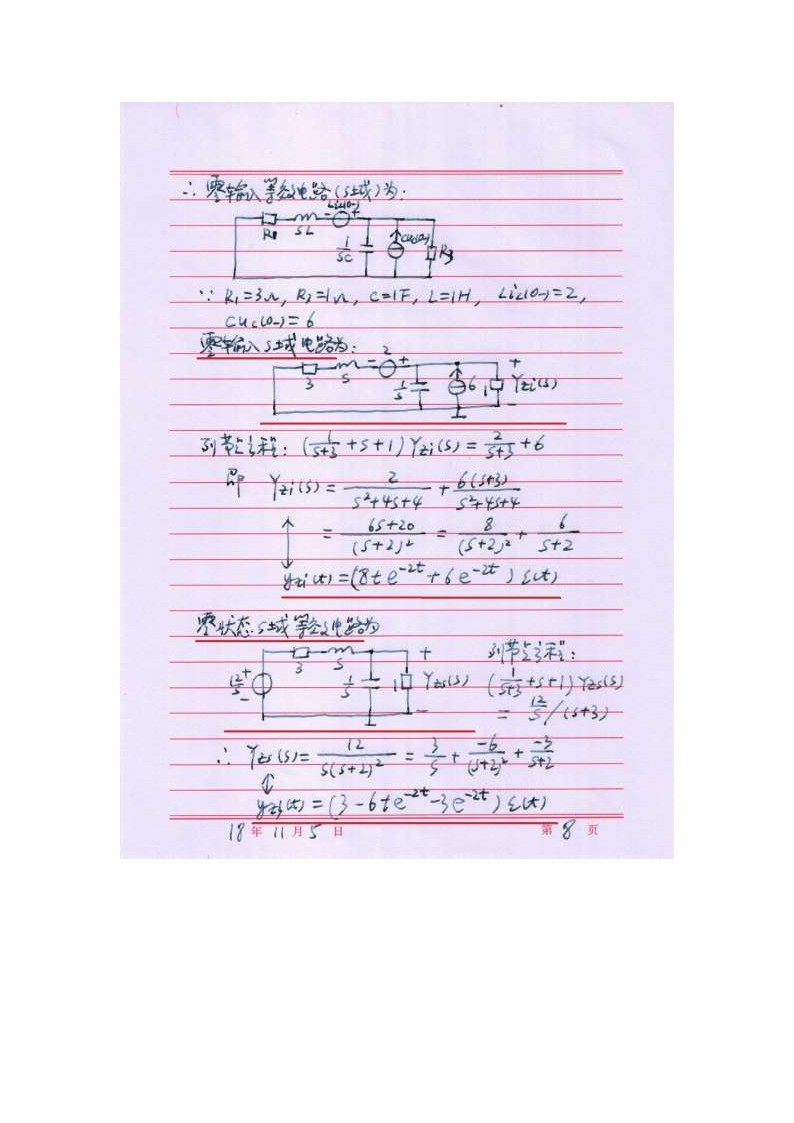 ∴ 零输入等效电路(S域)为:
R1 SL Lic(0-) - + 1/SC Cuc(0-) R2
∵ R1=3Ω, R2=1Ω, C=1F, L=1H, Lic(0-)=2,
Cuc(0-)=6
零输入S域电路为:
3 S - 2 + 1/S 6 1 + Yzi(s) -
列节点方程: (1/(S+3) + S + 1) Yzi(s) = 2/(S+3) + 6
即 Yzi(s) = 2/(S²+4S+4) + 6(S+3)/(S²+4S+4)
= (6S+20)/(S+2)² = 8/(S+2)² + 6/(S+2)
↕
yzi(t) = (8te^{-2t} + 6e^{-2t}) ε(t)
零状态S域等效电路为
12/S + - 3 S 1/S 1 + Yzs(s) -
列节点方程:
(1/(S+3) + S + 1) Yzs(s)
= 12/S /(S+3)
∴ Yzs(s) = 12/(S(S+2)²) = 3/S + -6/(S+2)² + -3/(S+2)
↕
yzs(t) = (3 - 6te^{-2t} - 3e^{-2t}) ε(t)
18 年 11 月 5 日 第 8 页